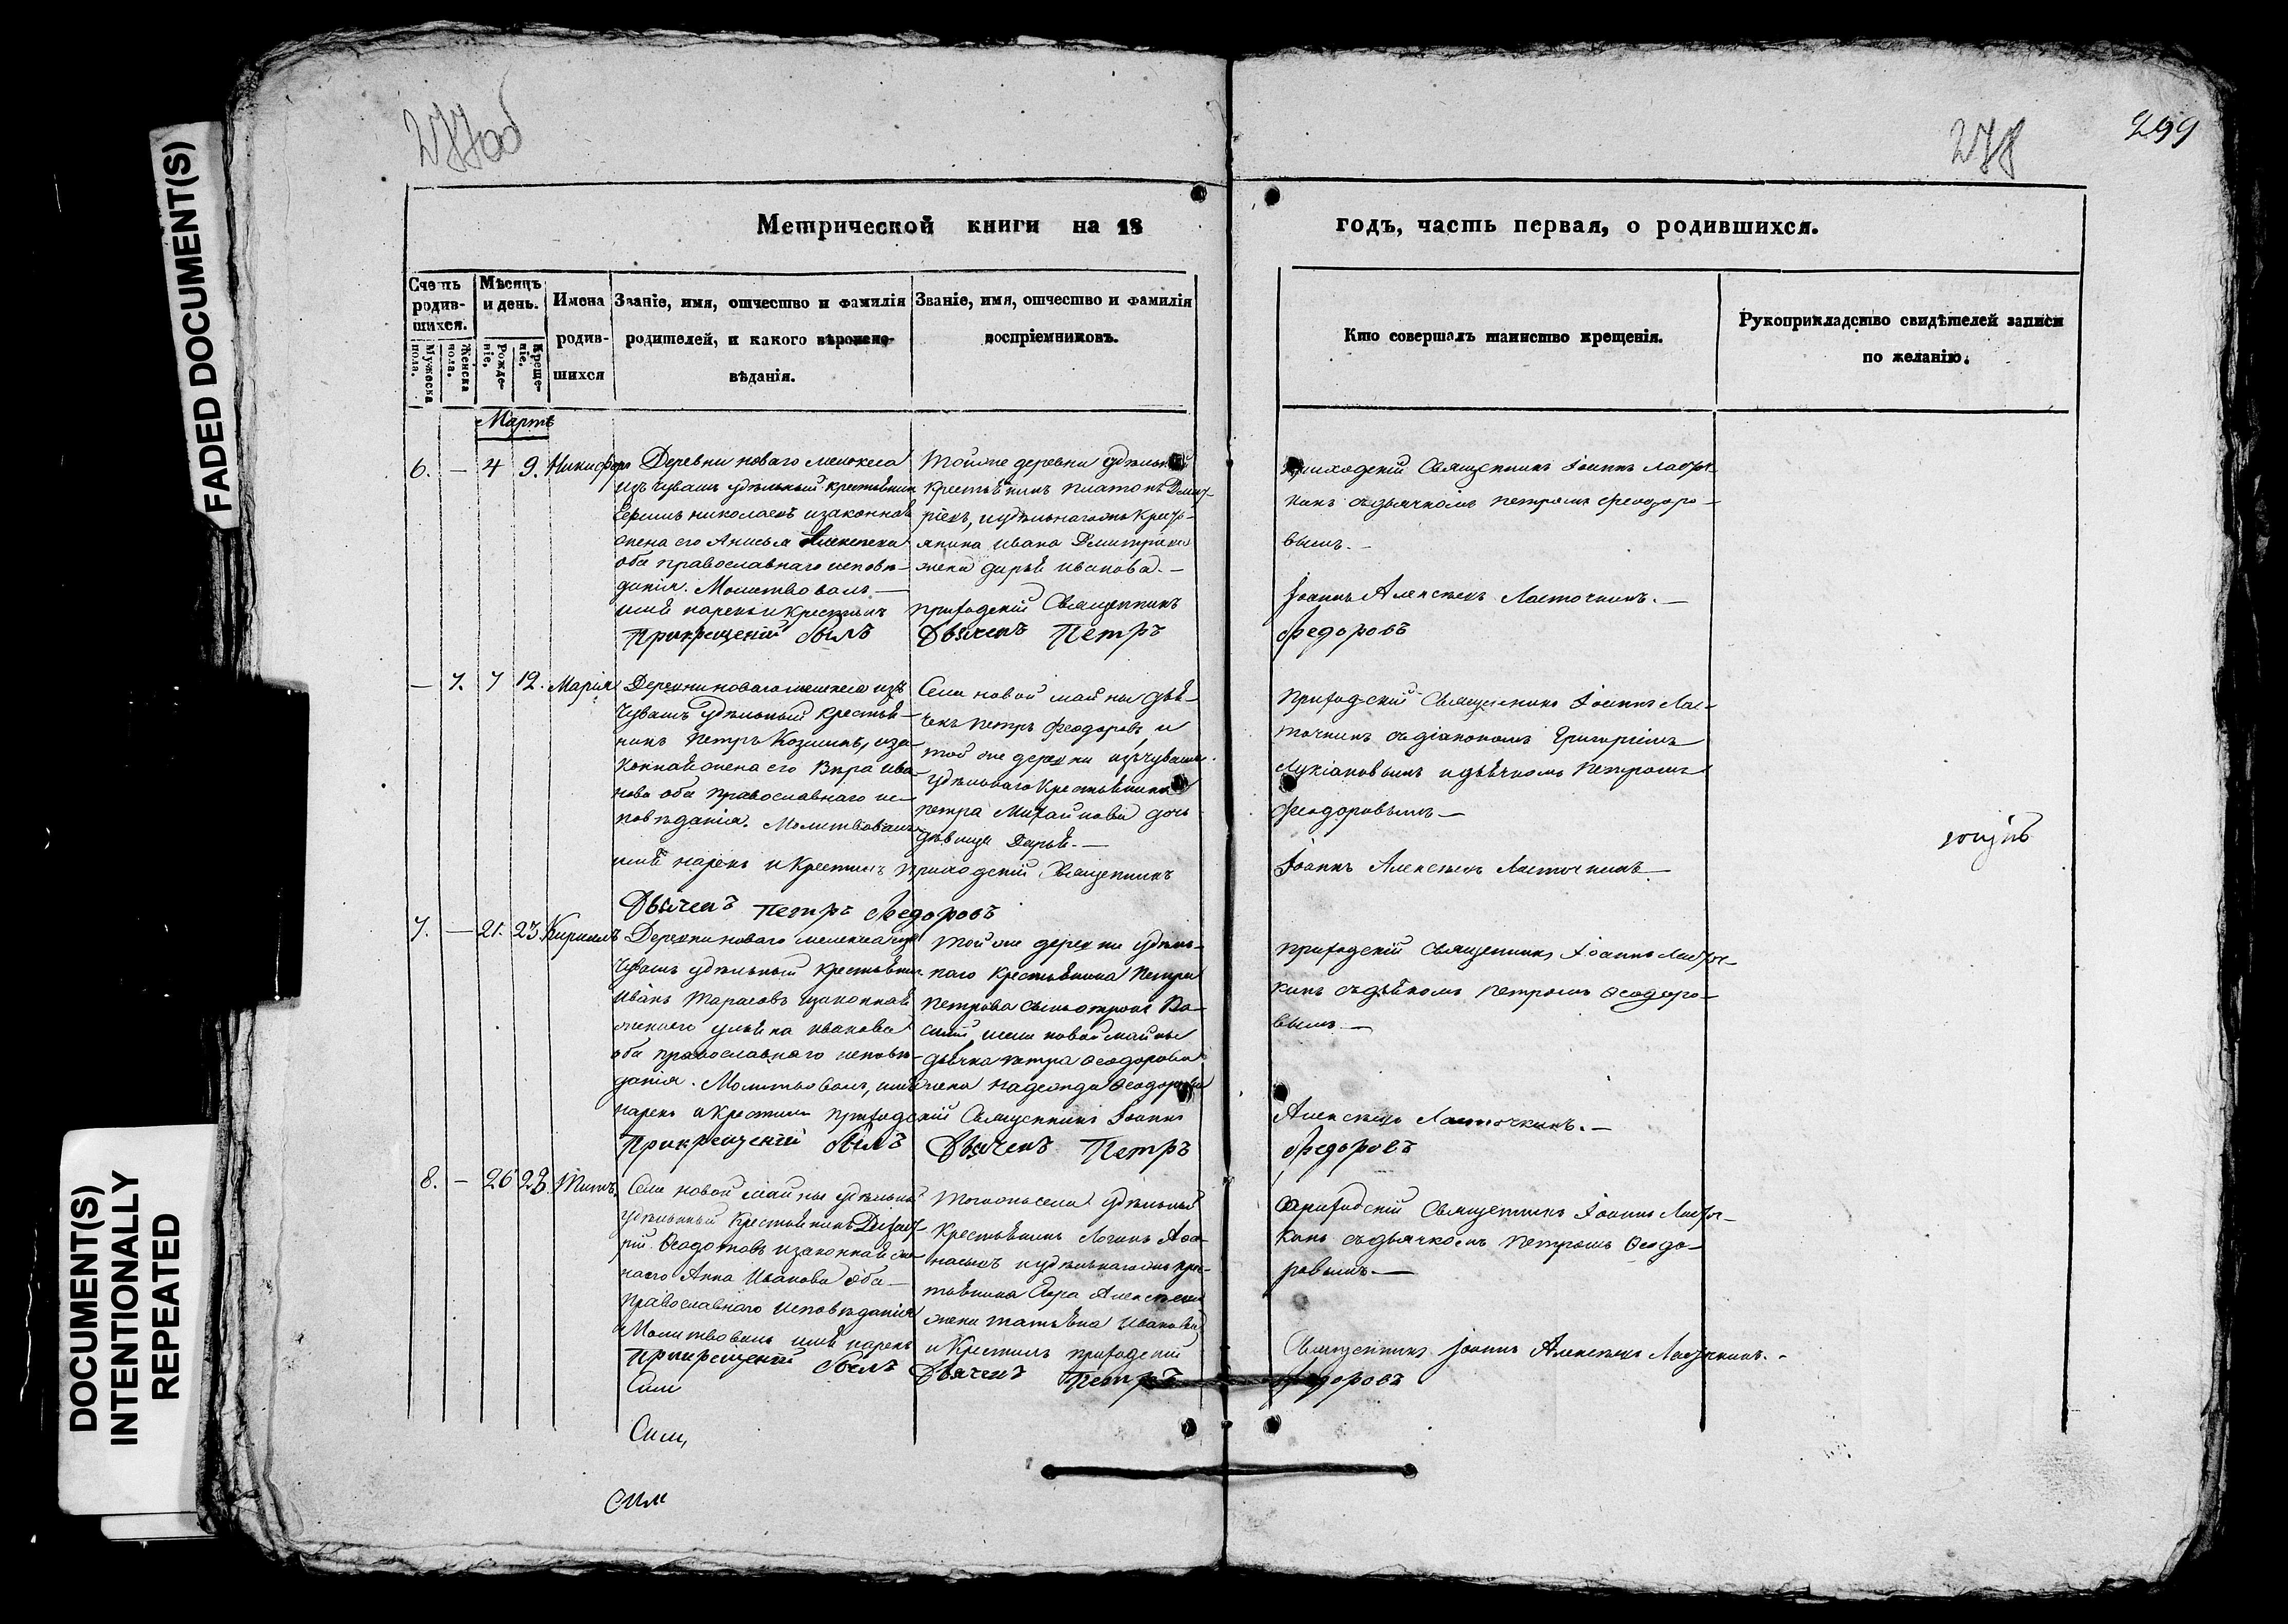 277об
278
299
Метрической книги на 18
годъ, часть первая, о родившихся.
Счетъ родившихся.
Мужеска пола.
Женска пола.
Мѣсяцъ и день.
Рожденіе.
Крещеніе.
Имена родившихся
Званіе, имя, отчество и фамилія родителей, и какого вѣроисповѣданія.
Званіе, имя, отчество и фамилія воспріемниковъ.
Кто совершалъ таинство крещенія.
Рукоприкладство свидѣтелей записи по желанію.
Мартъ
6. — 4 9. Никифоръ
Деревни новаго мелекеса
изъ чувашъ удѣльный крестьянинъ
Николаевъ изаконная
жена его Анисья Алексеева
оба православнаго исповѣ-
данія. Молитвовалъ —
имя нарекъ и крестилъ приходскій Священникъ
Прикрещеніи былъ Дьячекъ Петръ
Тойже деревни удѣльный
крестьянинъ Платонъ Дмит-
ріевъ, иудѣльнагожъ кресть-
янина Ивана Дмитріева
жена Дарья Иванова. —
приходскій Священникъ Іоаннъ Ласточ-
кинъ съдьячкомъ Петромъ Феодоро-
вымъ. —
Іоаннъ Алексѣевъ Ласточкинъ. —
Федоровъ
— 7. 7 12. Марія
Деревни новаго мелекеса изъ
Чувашъ удѣльный крестья-
нинъ Петръ Козминъ, иза-
конная жена его Вѣра Ива-
нова оба православнаго ис-
повѣданія. Молитвовалъ
имя нарекъ и крестилъ приходскій Священникъ
Дьячекъ Петръ Федоровъ
Села новой майны дья-
чекъ Петръ Феодоровъ, и
той же деревни изъ чувашъ
удѣльнаго крестьянина
Петра Михайлова дочь
дѣвица Дарья. —
Приходскій Священникъ Іоаннъ Лас-
точкинъ съ діакономъ Григоріемъ
Лукіановымъ и дьячкомъ Петромъ
Феодоровымъ —
Іоаннъ Алексѣевъ Ласточкинъ —
7. — 21. 23. Кириллъ
Деревни новаго мелекеса изъ
Чувашъ удѣльный крестьянинъ
Иванъ Тарасовъ изаконная
жена его Ульяна Иванова
оба православнаго исповѣ-
данія. Молитвовалъ, имя
нарекъ и крестилъ приходскій Священникъ Іоаннъ
Прикрещеніи былъ Дьячекъ Петръ
Той же деревни удѣль-
наго крестьянина Петра
Петрова сынъ отрокъ Ва-
силій, исела новой майны
дьячка Петра Ѳеодорова
жена Надежда Ѳеодорова
Приходскій Священникъ Іоаннъ Ласточ-
кинъ съдьячкомъ Петромъ Ѳеодоро-
вымъ. —
Алексѣевъ Ласточкинъ. —
Федоровъ
8. — 26 28. Титъ.
Села новой майны удѣльный
удѣльный крестьянинъ Дмит-
рій Ѳеодотовъ изаконная же-
на его Анна Иванова оба —
православнаго исповѣданія
Молитвовалъ имя нарекъ
Прикрещеніи былъ Дьячекъ Петръ
Тогожъ села удѣльный
крестьянинъ Логинъ Аѳа-
насьевъ иудѣльнагожъ кре-
стьянина Алексѣева
жена Татьяна Иванова
и крестилъ приходскій
Приходскій Священникъ Іоаннъ Ласточ-
кинъ съдьячкомъ Петромъ Ѳеодо-
ровымъ. —
Священникъ Іоаннъ Алексѣевъ Ласточкинъ. -
Федоровъ
FADED DOCUMENT(S)
DOCUMENT(S)
INTENTIONALLY
REPEATED